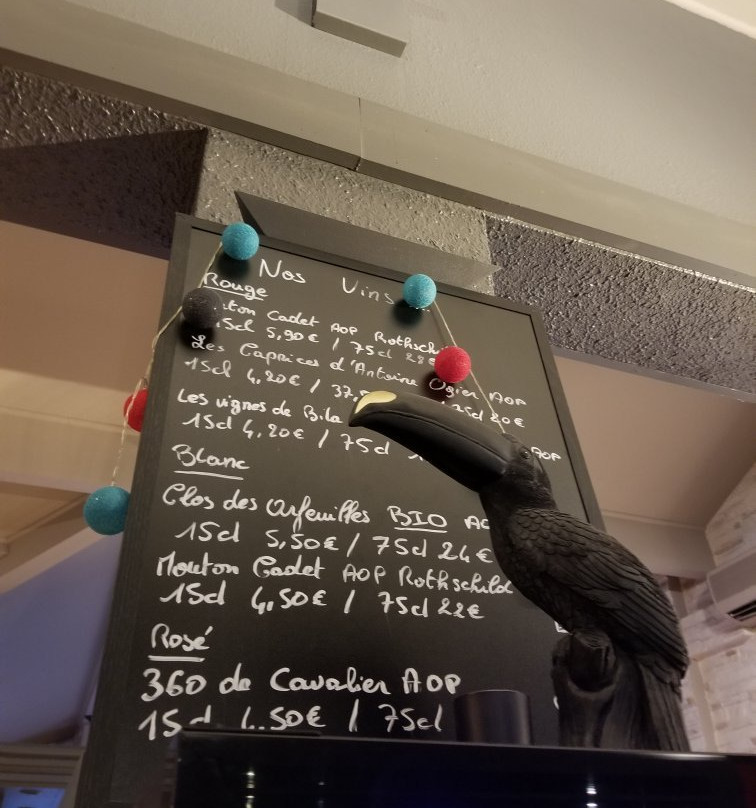 Nos Vins
Rouge
Cadet AOP
15cl 5,90€ / 75cl 22€
Les Caprices d'Antoine Ogier AOP
15cl 4,20€ / 20€
Les vignes de AOP
15cl 4,20€ / 75cl
Blanc
Clos des Orfeuilles BIO
15cl 5,50€ / 75cl 24€
Mouton Cadet AOP Rothschild
15cl 4,50€ / 75cl 22€
Rosé
360 de Cavalier AOP
15cl 4.50€ / 75cl